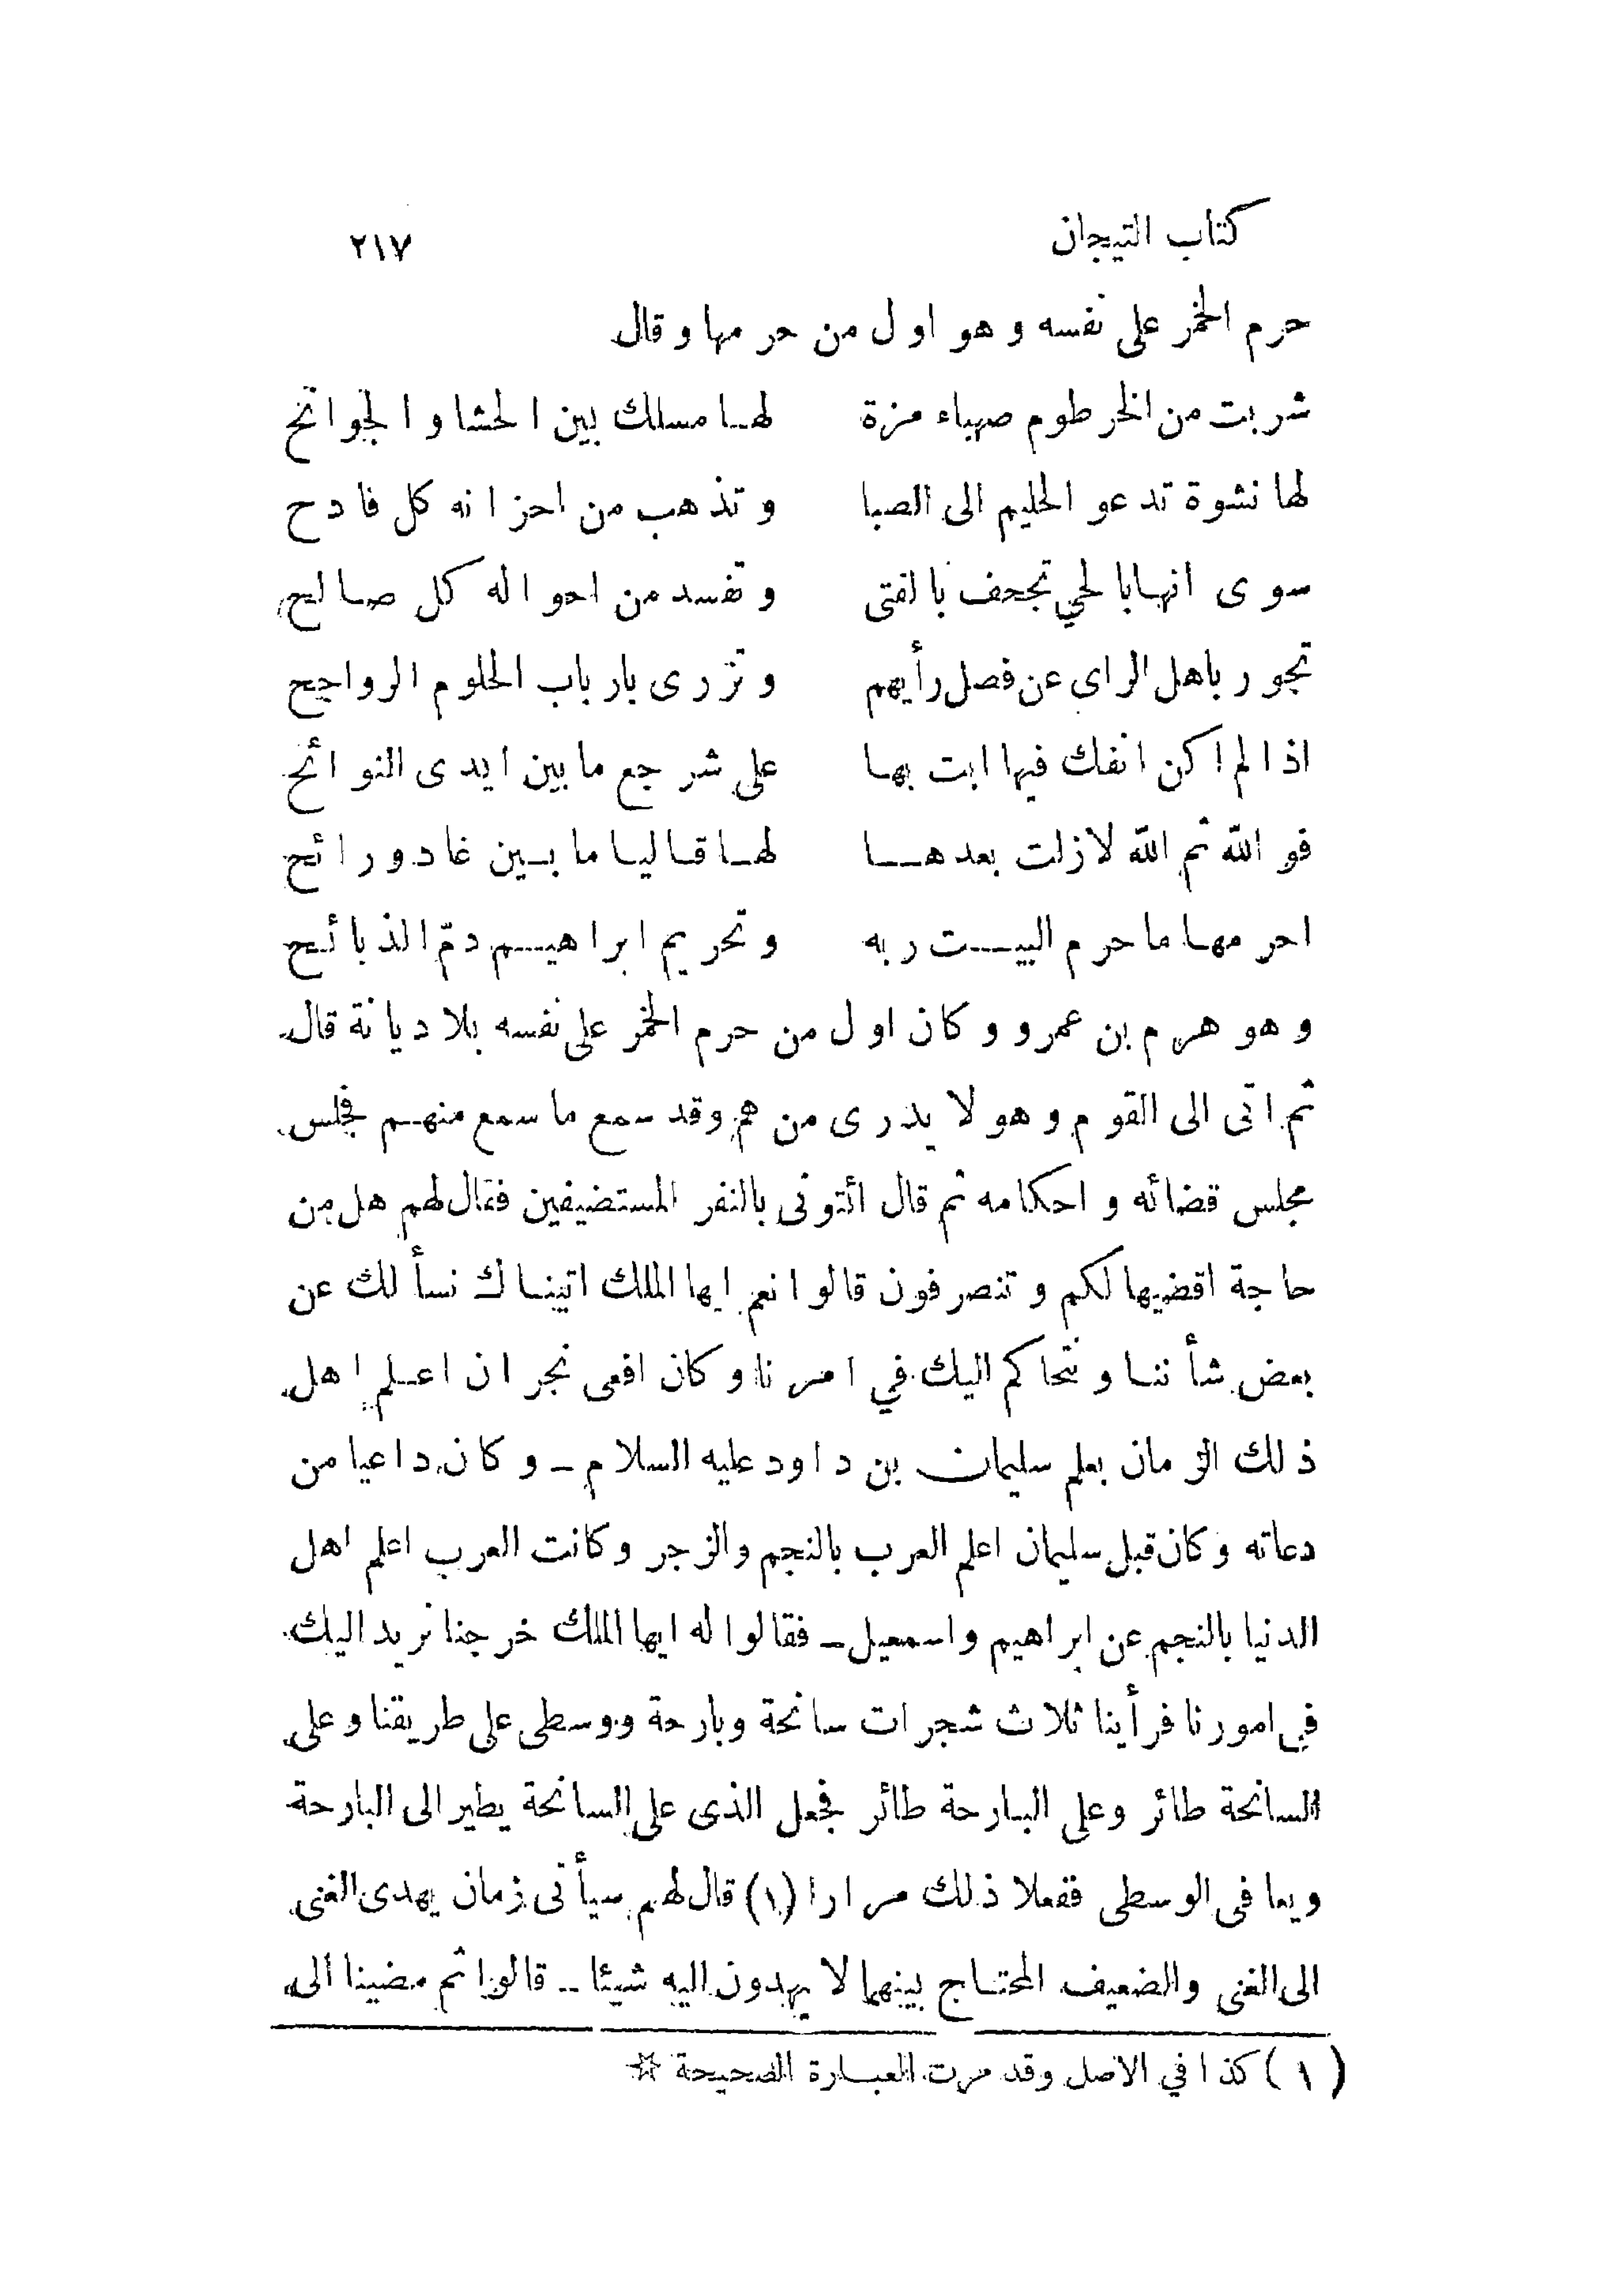 كتاب التيجان ٢١٧
حرم الخمر على نفسه وهو اول من حرمها وقال
شربت من الخرطوم صهباء مزة لها مسلك بين الحشا والجوانح
لها نشوة تدعو الحليم الى الصبا وتذهب من احزانه كل فادح
سوى انها بالحي تجحف بالفتى وتفسد من احواله كل صالح
تجور باهل الراى عن فصل رأيهم وتزرى بارباب الحلوم الرواجح
اذا لم اكن انفك فيها ابت بها على شرجع ما بين ايدى النوائح
فو الله ثم الله لازلت بعدها لها قاليا ما بين غاد ورائح
احرمها ما حرم البيت ربه وتحريم ابراهيم دمّ الذبائح
وهو هرم بن عمرو وكان اول من حرم الخمر على نفسه بلا ديانة قال
ثم اتى الى القوم وهو لا يدرى من هم وقد سمع ما سمع منهم فجلس
مجلس قضائه واحكامه ثم قال ائتونى بالنفر المستضيفين فقال لهم هل من
حاجة اقضيها لكم وتنصرفون قالوا نعم ايها الملك اتيناك نسألك عن
بعض شأننا ونتحاكم اليك في امرنا وكان افعى نجران اعلم اهل
ذلك الزمان بعلم سليمان بن داود عليه السلام ــ وكان داعيا من
دعاته وكان قبل سليمان اعلم العرب بالنجم والزجر وكانت العرب اعلم اهل
الدنيا بالنجم عن ابراهيم واسمعيل ــ فقالوا له ايها الملك خرجنا نريد اليك
فى امورنا فرأينا ثلاث شجرات سانحة وبارحة ووسطى على طريقنا وعلى
السانحة طائر وعلى البارحة طائر فجعل الذى على السانحة يطير الى البارحة
ويعافى الوسطى ففعلا ذلك مرارا (١) قال لهم سيأتى زمان يهدى الغنى
الى الغنى والضعيف المحتاج بينهما لا يهدون اليه شيئا ــ قالوا ثم مضينا الى
(١) كذا في الاصل وقد مرت العبارة الصحيحة ☆